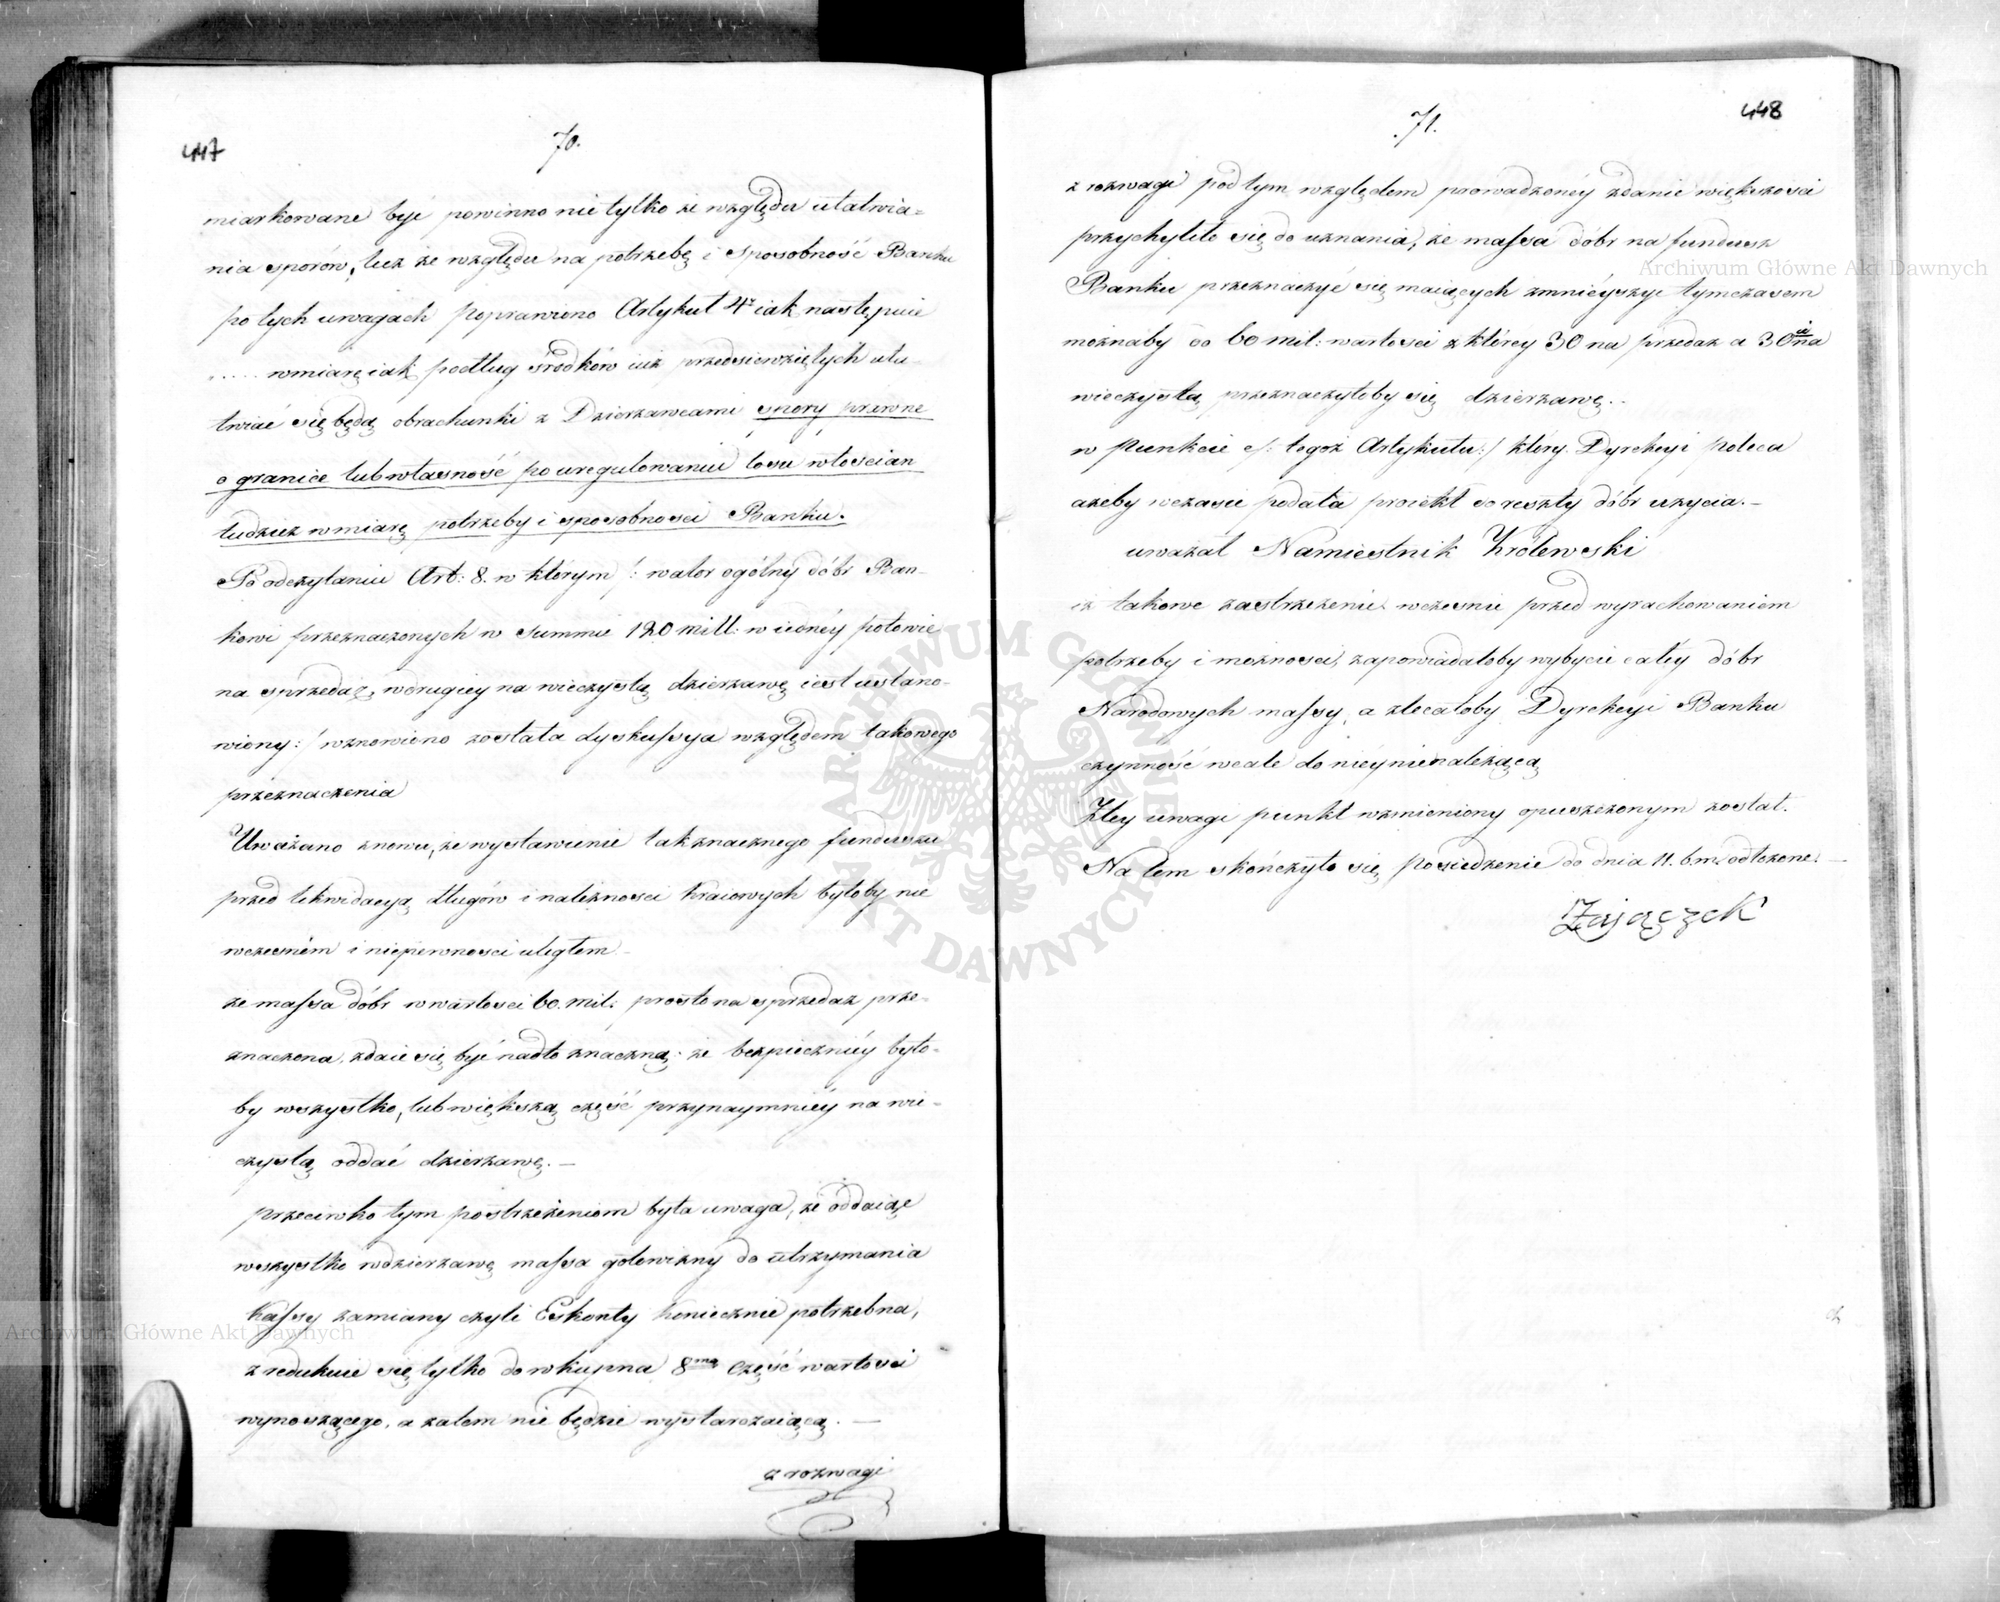 447
70.
miarkowane być powinno nie tylko ze względu ułatwia=
nia sporów, lecz ze względu na potrzebę i sposobność Banku
po tych uwagach poprawiono Artykuł 4ty iak następuie
..... w miarę iak podług środków iuż przedsiewziętych uła-
twiać się będą obrachunki z Dzierżawcami spory prawne
o granice lub własność po uregulowaniu losu włościan
tudzież w miarę potrzeby i sposobności Banku.
Po odczytaniu Art: 8. w którym /: walor ogólny dóbr Ban-
kowi przeznaczonych w summie 120 mill: w iednéy połowie
na sprzedaż, w drugiey na wieczystą dzierżawę iest ustano-
wiony :/ wznowiono została dyskussya względem takowego
przeznaczenia
Uważano znowu, że wystawienie tak znacznego funduszu
przed likwidacyą długów i należności kraiowych byłoby nie
wczesném i niepewności uległem –
że massa dóbr w wartości 60. mil: prosto na sprzedaż prze-
znaczona, zdaie się być nadto znaczną; że bezpieczniéy było-
by wszystko, lub większą część przynaymniéy na wie-
czystą oddać dzierżawę. —
przeciwko tym postrzeżeniom była uwaga, że oddaiąc
wszystko w dzierżawę massa gotowizny do utrzymania
Kassy zamiany czyli Eskonty koniecznie potrzebna,
zredukuie się tylko do wkupna 8mą część wartości
wynoszącego, a zatem nie będzie wystarczaiącą. —
z rozwagi
448
.71.
z rozwagi pod tym względem prowadzonéy zdanie większości
przychyliło się do uznania, że massa dóbr na fundusz
Banku przeznaczyć się maiących zmnieyszyć tymczasem
możnaby do 60 mil: wartości z któréy 30 na przedaż a 30 na
wieczystą przeznaczyłoby się dzierżawę. –
w Punkcie c/: tegoż Artykułu :/ który Dyrekcyi poleca
ażeby w czasie podała proiekt do reszty dóbr użycia. –
uważał Namiestnik Królewski
iż takowe zastrzeżenie wcześnie przed wyrachowaniem
potrzeby i możności, zapowiadałoby wybycie całéy dóbr
Narodowych massy, a zlecałoby Dyrekcyi Banku
czynność wcale do niéy nienależącą
Z téy uwagi punkt wzmieniony opuszczonym został.
Na tem skończyło się posiedzenie do dnia 11. b.m. odłożone. —
Zajączek
Archiwum Główne Akt Dawnych
Archiwum Główne Akt Dawnych
ARCHIWUM GŁÓWNE AKT DAWNYCH